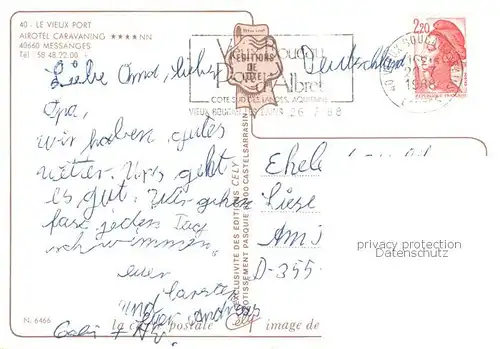 40 - LE VIEUX PORT
AIROTEL CARAVANING ★★★★NN
40660 MESSANGES
Tél 58 48.22.00
EDITIONS
DE
LUXE
Vieux Boucau
Port d'Albret
COTE SUD DES LANDES, AQUITAINE
VIEUX BOUCAU LES BAINS
2,20
1988
Deutschland
Liebe Oma, lieber
Opa,
wir haben gutes
wetter. Uns geht
es gut. Wir gehen
fast jeden Tag
schwimmen.
euer
Carsten
und Andreas
EXCLUSIVITE DES EDITIONS CELY
LOTISSEMENT PASQUIE 82100 CASTELSARRASIN
Ehele
Liese
Am
D-355
persönliche Daten
Datenschutz
N. 6466
la carte postale Cely image de